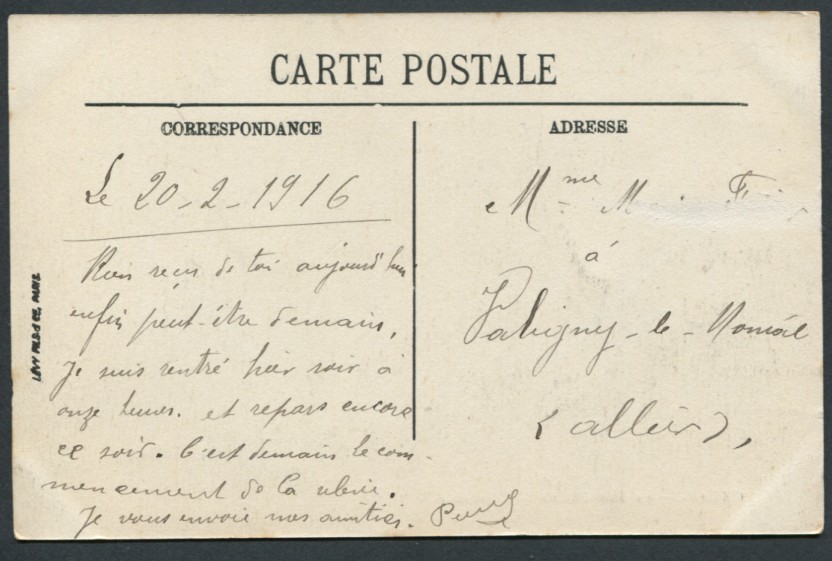 CARTE POSTALE
CORRESPONDANCE
ADRESSE
Le 20-2-1916
Rien reçu de toi aujourd'hui
enfin peut-être demain,
Je suis rentré hier soir à
onze heures. et repars encore
ce soir. C'est demain le com-
mencement de la
Je vous envoie mes amitiés.
Mme
à
-le-
(allier),